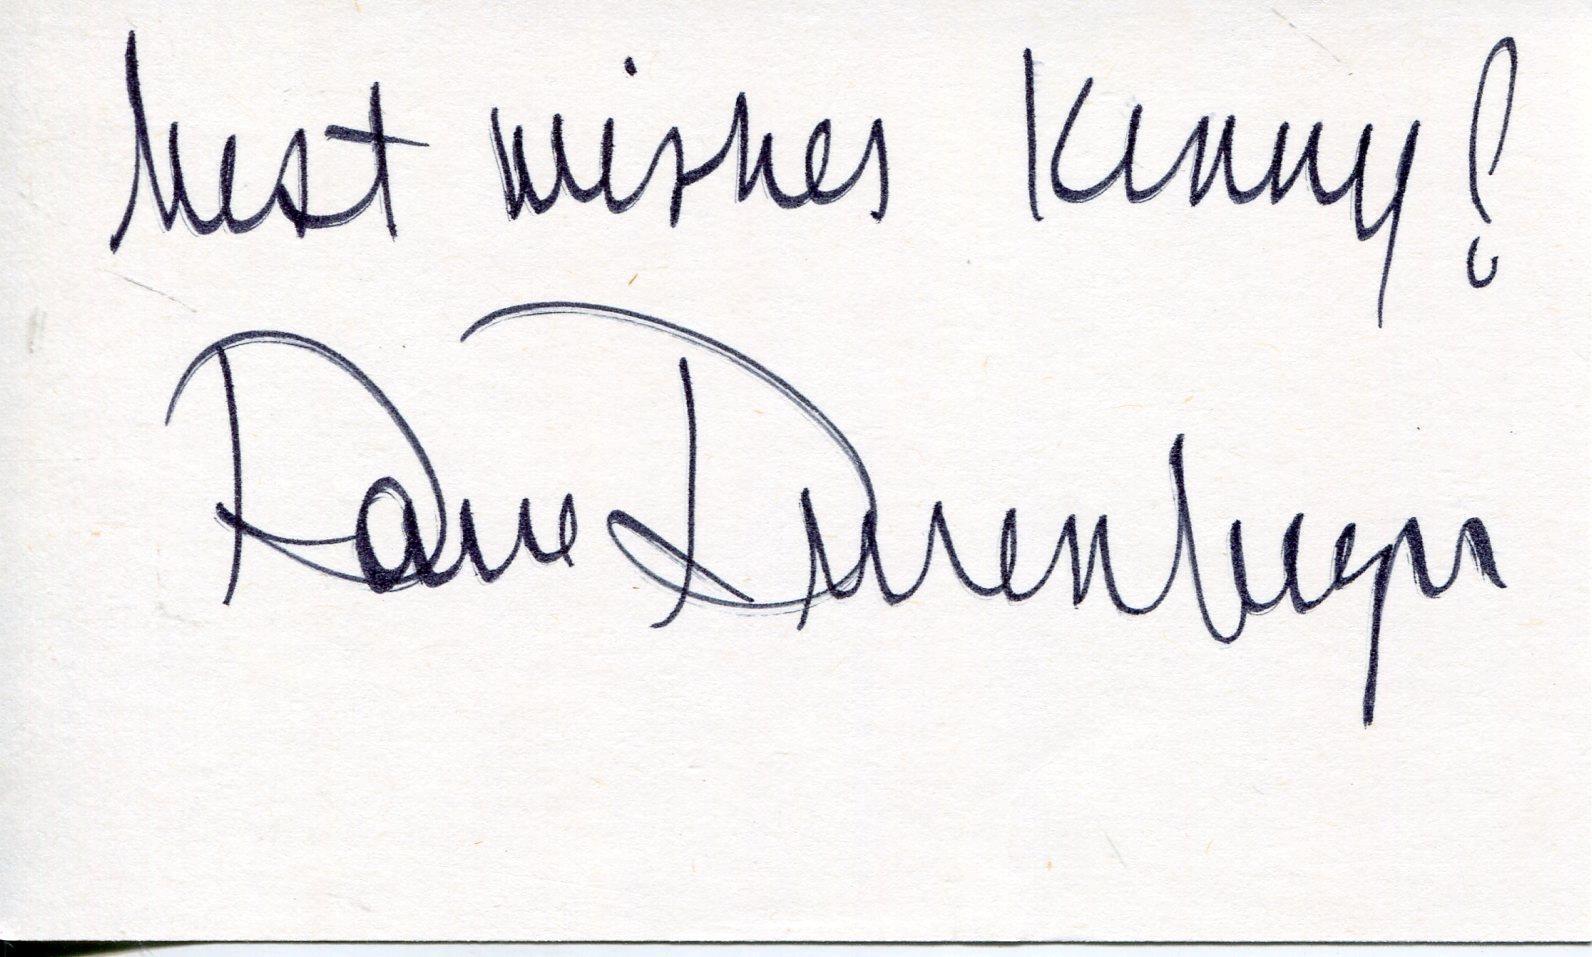 Best wishes Kenny!
Dave Durenberger